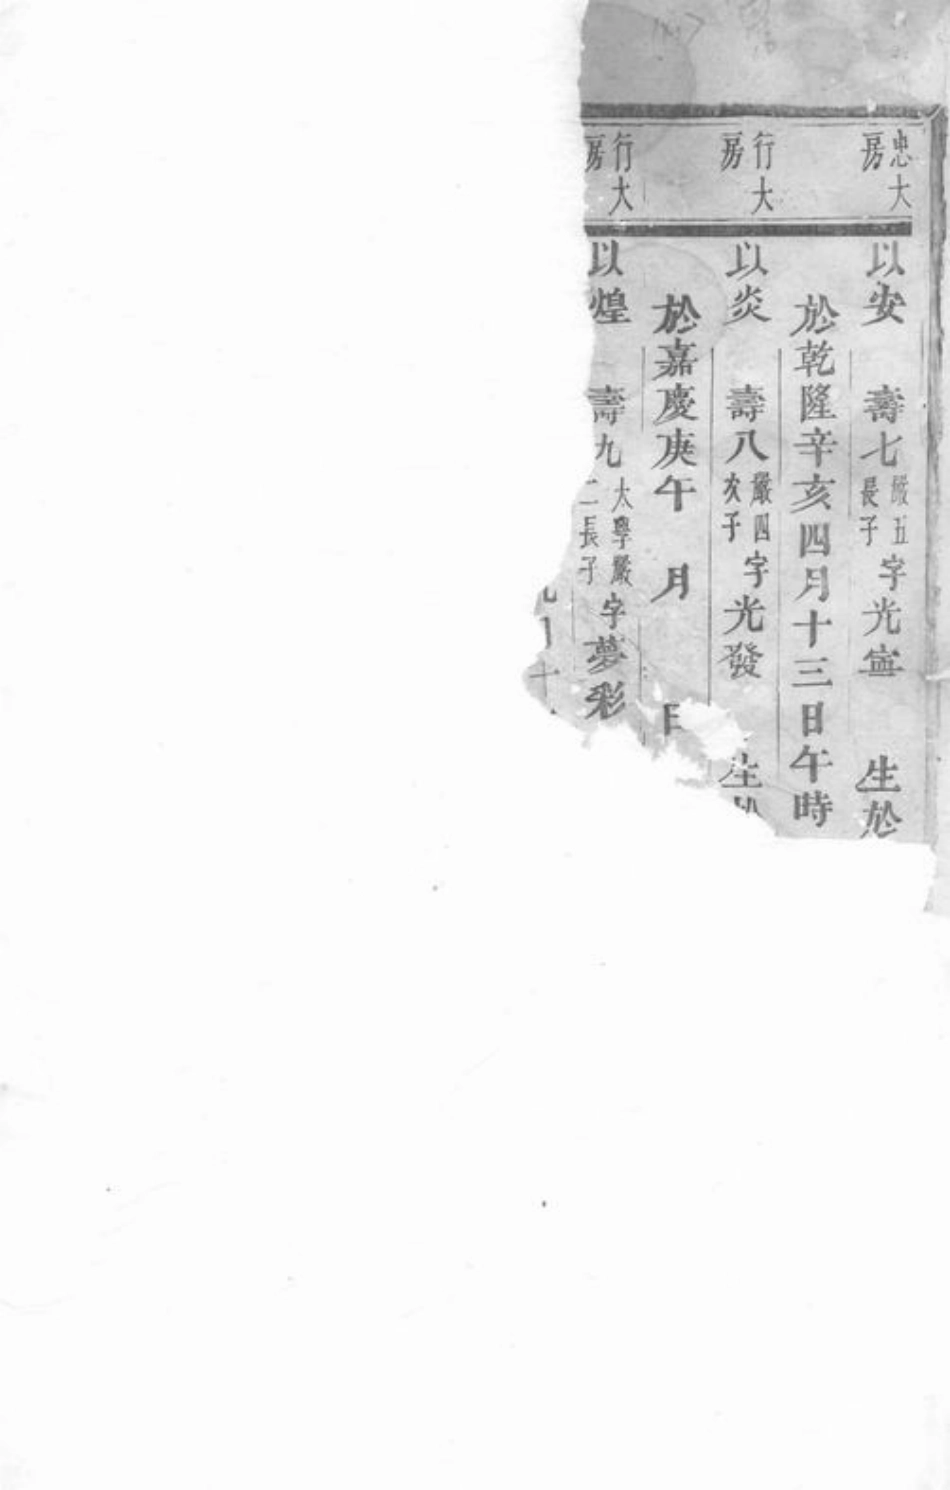 忠大房
以安　壽七嚴五長子字光寧　生於
於乾隆辛亥四月十三日午時
行大房
以炎　壽八嚴四次子字光發　生於
於嘉慶庚午　月　日
行大房
以煌　壽九太學嚴二長子字夢彩